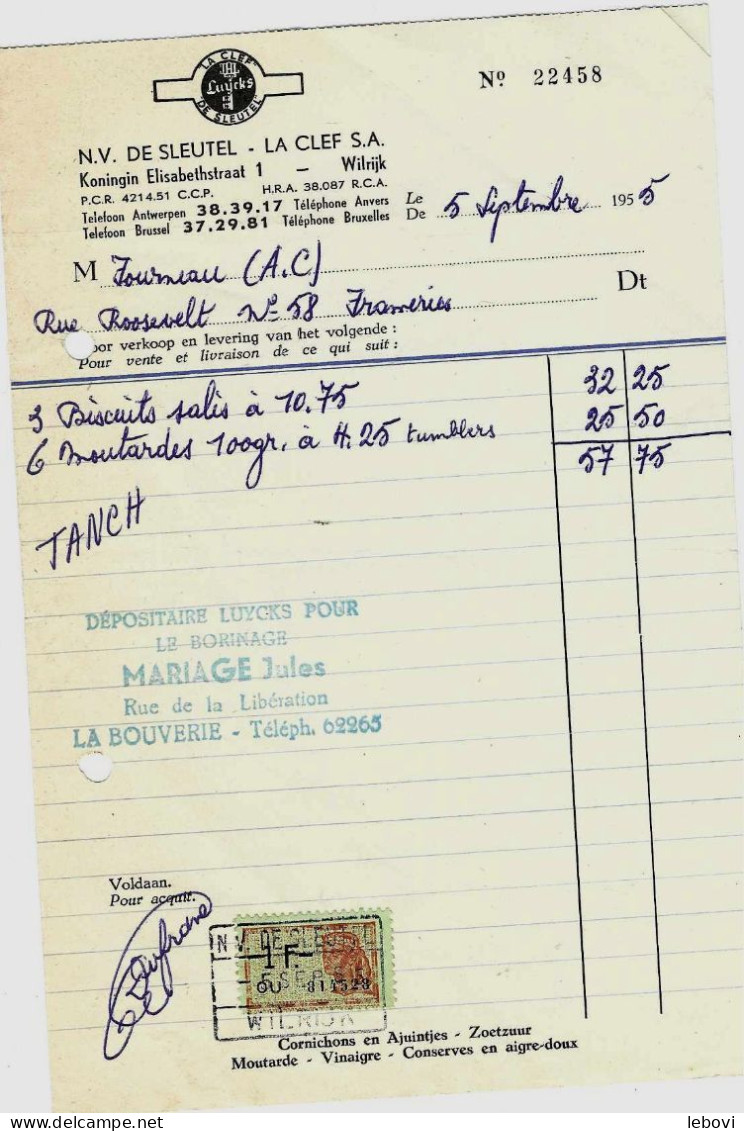 LA CLEF
Luycks
DE SLEUTEL
Nº 22458
N.V. DE SLEUTEL - LA CLEF S.A.
Koningin Elisabethstraat 1 — Wilrijk
P.C.R. 4214.51 C.C.P. H.R.A. 38.087 R.C.A.
Telefoon Antwerpen 38.39.17 Téléphone Anvers
Telefoon Brussel 37.29.81 Téléphone Bruxelles
Le
De 5 Septembre 1955
M Fourneau (A.C) Dt
Rue Roosevelt Nº 58 Frameries
oor verkoop en levering van het volgende :
Pour vente et livraison de ce qui suit :
3 Biscuits salés à 10.75 32 25
6 Moutardes 100gr. à 4.25 tumblers 25 50
57 75
TANCH
DÉPOSITAIRE LUYCKS POUR
LE BORINAGE
MARIAGE Jules
Rue de la Libération
LA BOUVERIE - Téléph. 62265
Voldaan.
Pour acquit.
N.V. DE SLEUTEL
1 F.
OU
WILRIJK
Cornichons en Ajuintjes - Zoetzuur
Moutarde - Vinaigre - Conserves en aigre-doux
© lebovi